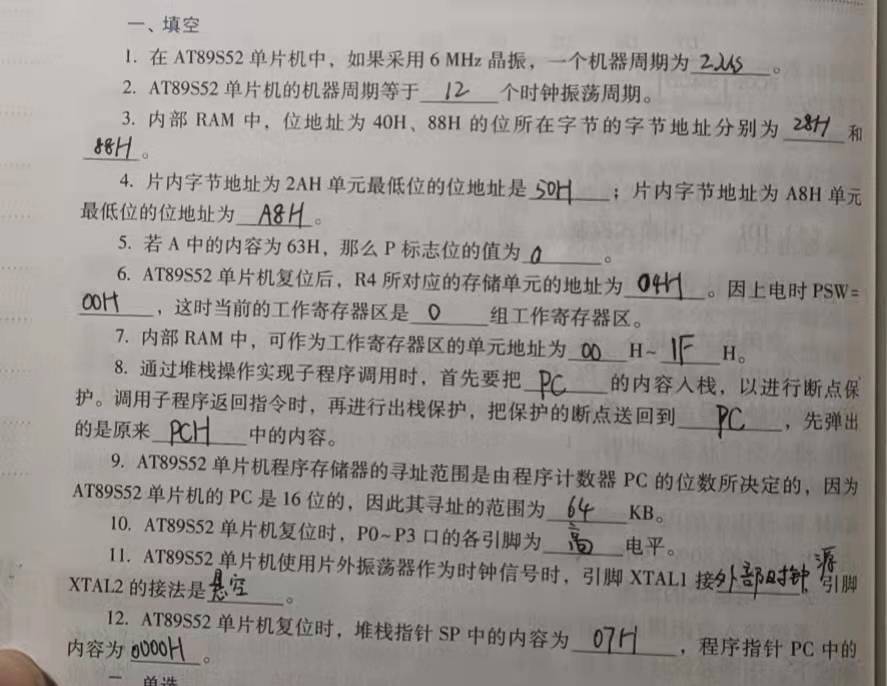 一、填空
1. 在 AT89S52 单片机中，如果采用 6 MHz 晶振，一个机器周期为 2μs 。
2. AT89S52 单片机的机器周期等于 12 个时钟振荡周期。
3. 内部 RAM 中，位地址为 40H、88H 的位所在字节的字节地址分别为 28H 和
88H 。
4. 片内字节地址为 2AH 单元最低位的位地址是 50H ；片内字节地址为 A8H 单元
最低位的位地址为 A8H 。
5. 若 A 中的内容为 63H，那么 P 标志位的值为 0 。
6. AT89S52 单片机复位后，R4 所对应的存储单元的地址为 04H 。因上电时 PSW=
00H ，这时当前的工作寄存器区是 0 组工作寄存器区。
7. 内部 RAM 中，可作为工作寄存器区的单元地址为 00 H~ 1F H。
8. 通过堆栈操作实现子程序调用时，首先要把 PC 的内容入栈，以进行断点保
护。调用子程序返回指令时，再进行出栈保护，把保护的断点送回到 PC ，先弹出
的是原来 PCH 中的内容。
9. AT89S52 单片机程序存储器的寻址范围是由程序计数器 PC 的位数所决定的，因为
AT89S52 单片机的 PC 是 16 位的，因此其寻址的范围为 64 KB。
10. AT89S52 单片机复位时，P0~P3 口的各引脚为 高 电平。
11. AT89S52 单片机使用片外振荡器作为时钟信号时，引脚 XTAL1 接外部时钟源，引脚
XTAL2 的接法是悬空 。
12. AT89S52 单片机复位时，堆栈指针 SP 中的内容为 07H ，程序指针 PC 中的
内容为 0000H 。
二、单选